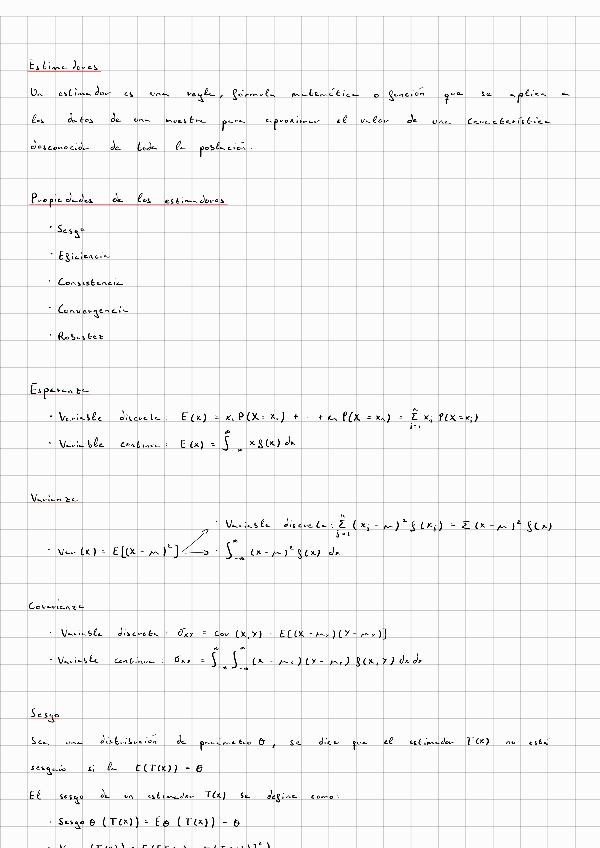 Estimadores
Un estimador es una regla, fórmula matemática o función que se aplica a
los datos de una muestra para aproximar el valor de una característica
desconocida de toda la población.
Propiedades de los estimadores
· Sesgo
· Eficiencia
· Consistencia
· Convergencia
· Robustez
Esperanza
· Variable discreta: E(x) = x₁ P(X = x₁) + ... + xₙ P(X = xₙ) = Σⁿⱼ₌₁ xⱼ P(X = xⱼ)
· Variable continua: E(x) = ∫_{-∞}^{∞} x f(x) dx
Varianza
· Variable discreta: Σⁿⱼ₌₁ (xⱼ - μ)² f(xⱼ) = Σ (x - μ)² f(x)
· Var(X) = E[(X - μ)²] · ∫_{-∞}^{∞} (x - μ)² f(x) dx
Covarianza
· Variable discreta: σxy = Cov (X, Y) = E[(X - μₓ)(Y - μᵧ)]
· Variable continua: σxy = ∫_{-∞}^{∞} ∫_{-∞}^{∞} (x - μₓ)(y - μᵧ) f(x, y) dx dx
Sesgo
Sea una distribución de parámetro θ, se dice que el estimador T(x) no está
sesgado si la E(T(x)) = θ
El sesgo de un estimador T(x) se define como:
· Sesgo θ (T(x)) = Eθ (T(x)) - θ